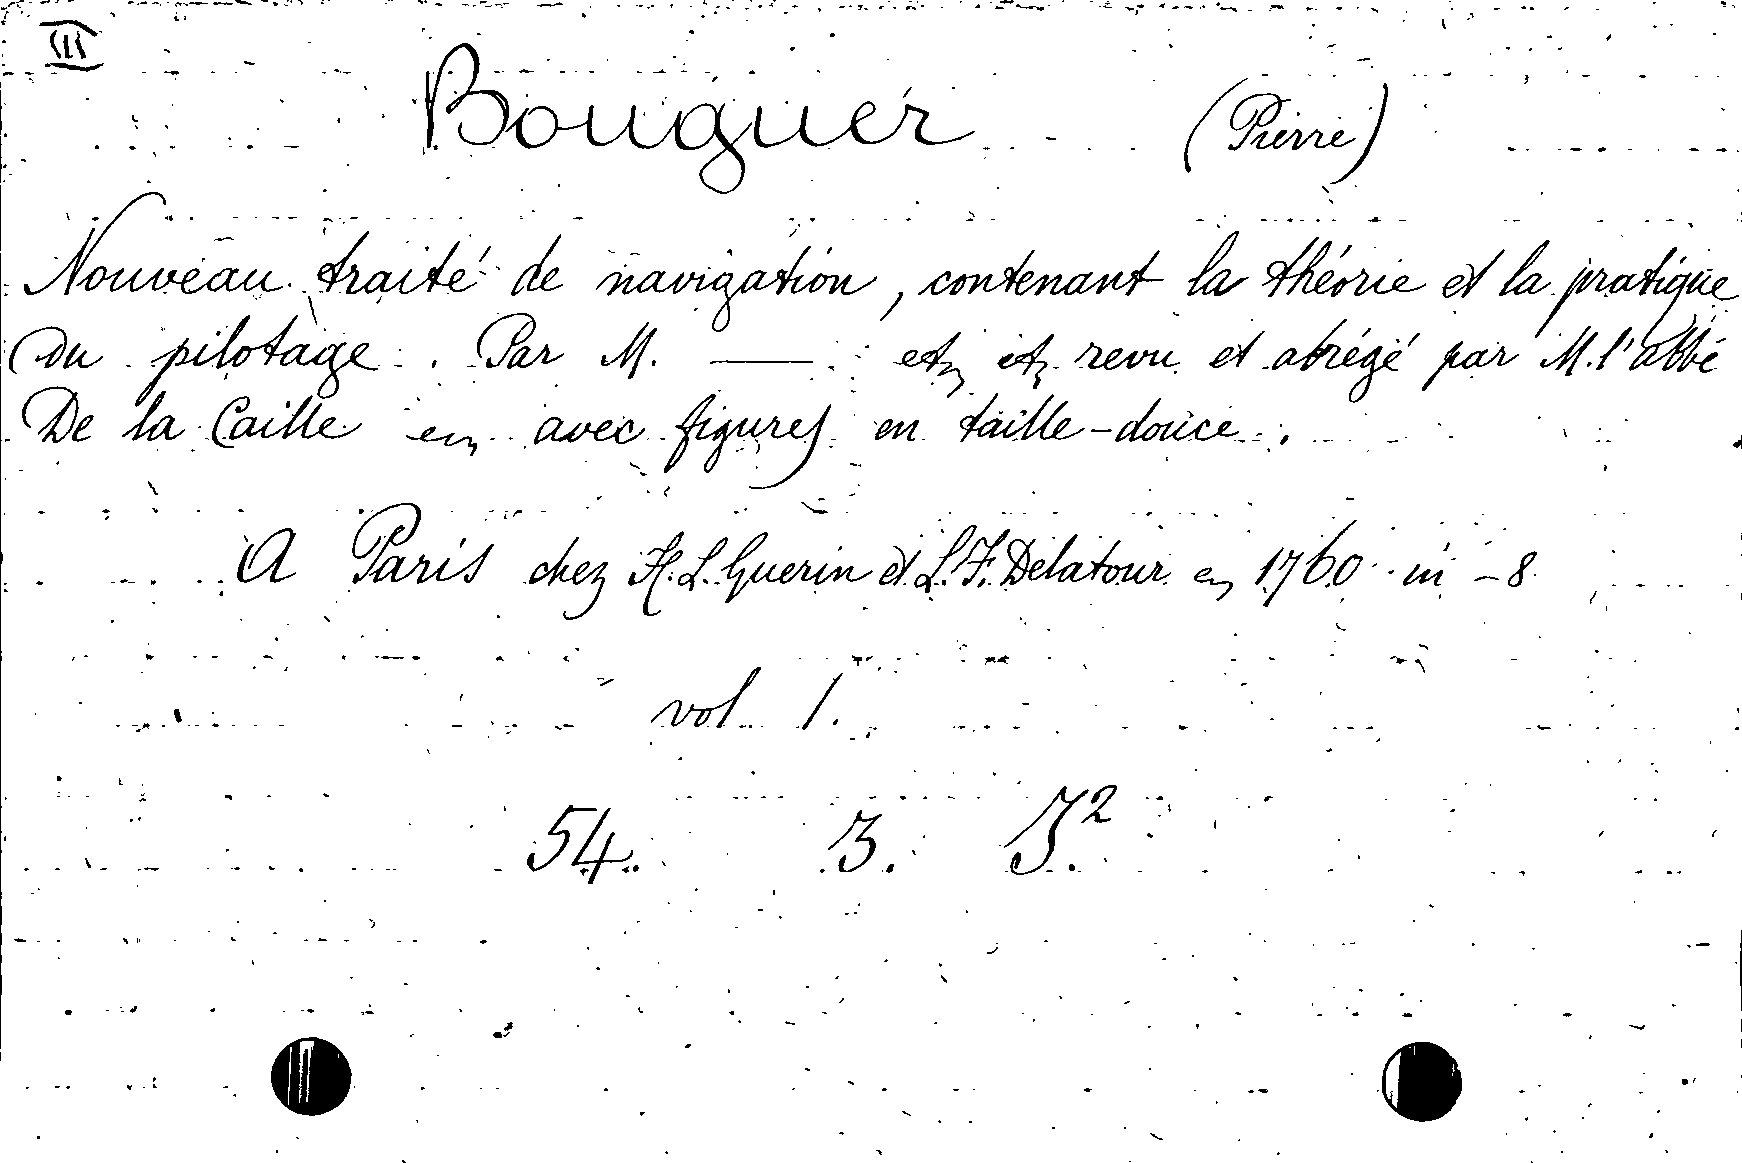 III
Bouguer (Pierre)
Nouveau traité de navigation, contenant la théorie et la pratique
du pilotage. Par M. —— etz etz revu et abrégé par M. l'abbé
De la Caille en avec figures en taille-douce.
A Paris chez H. L. Guerin et L. F. Delatour en 1760 in -8
vol 1.
54. 3. J².